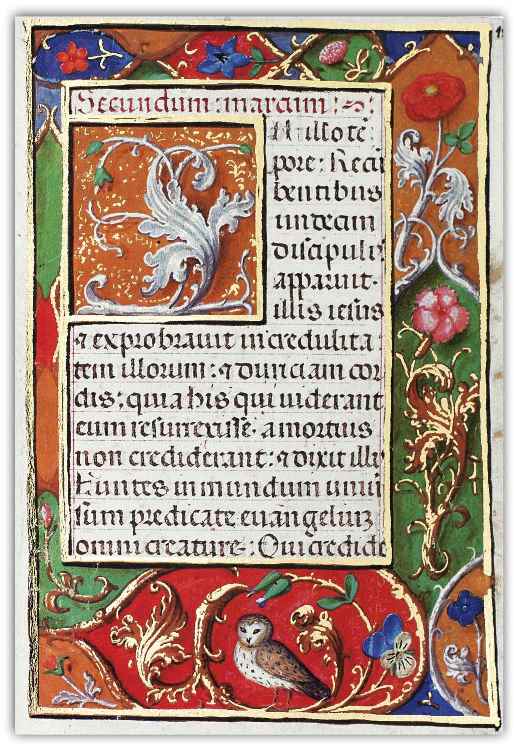 Secundum: marcum:
N illo te
pore: Recū
bentibus
undecim
discipulis
apparuit
illis iesus
⁊ exprobravit incredulita
tem illorum: ⁊ duriciam cor
dis: quia his qui viderant
eum resurrexisse. a mortuis
non crediderant: ⁊ dixit illis
Euntes in mundum univer
sum predicate evangelium
omni creature: Qui credide